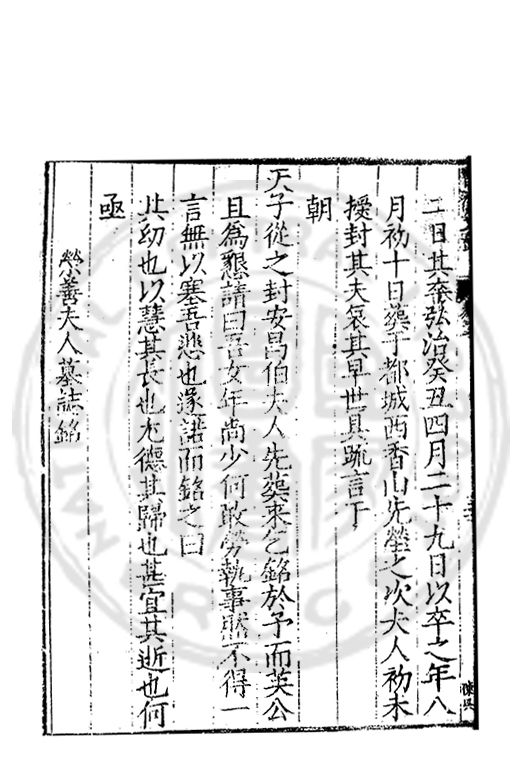 二日其卒弘治癸丑四月二十九日以卒之年八
月初十日葬于都城西香山先塋之次夫人初未
授封其夫哀其早世具䟽言于
朝
天子從之封安昌伯夫人先葬來乞銘於予而英公
且為懇請曰吾女年尚少何敢勞執事㷼不得一
言無以塞吾悲也遂諾而銘之曰
其幼也以慧其長也尤德其歸也甚宜其逝也何
亟
榮善夫人墓誌銘